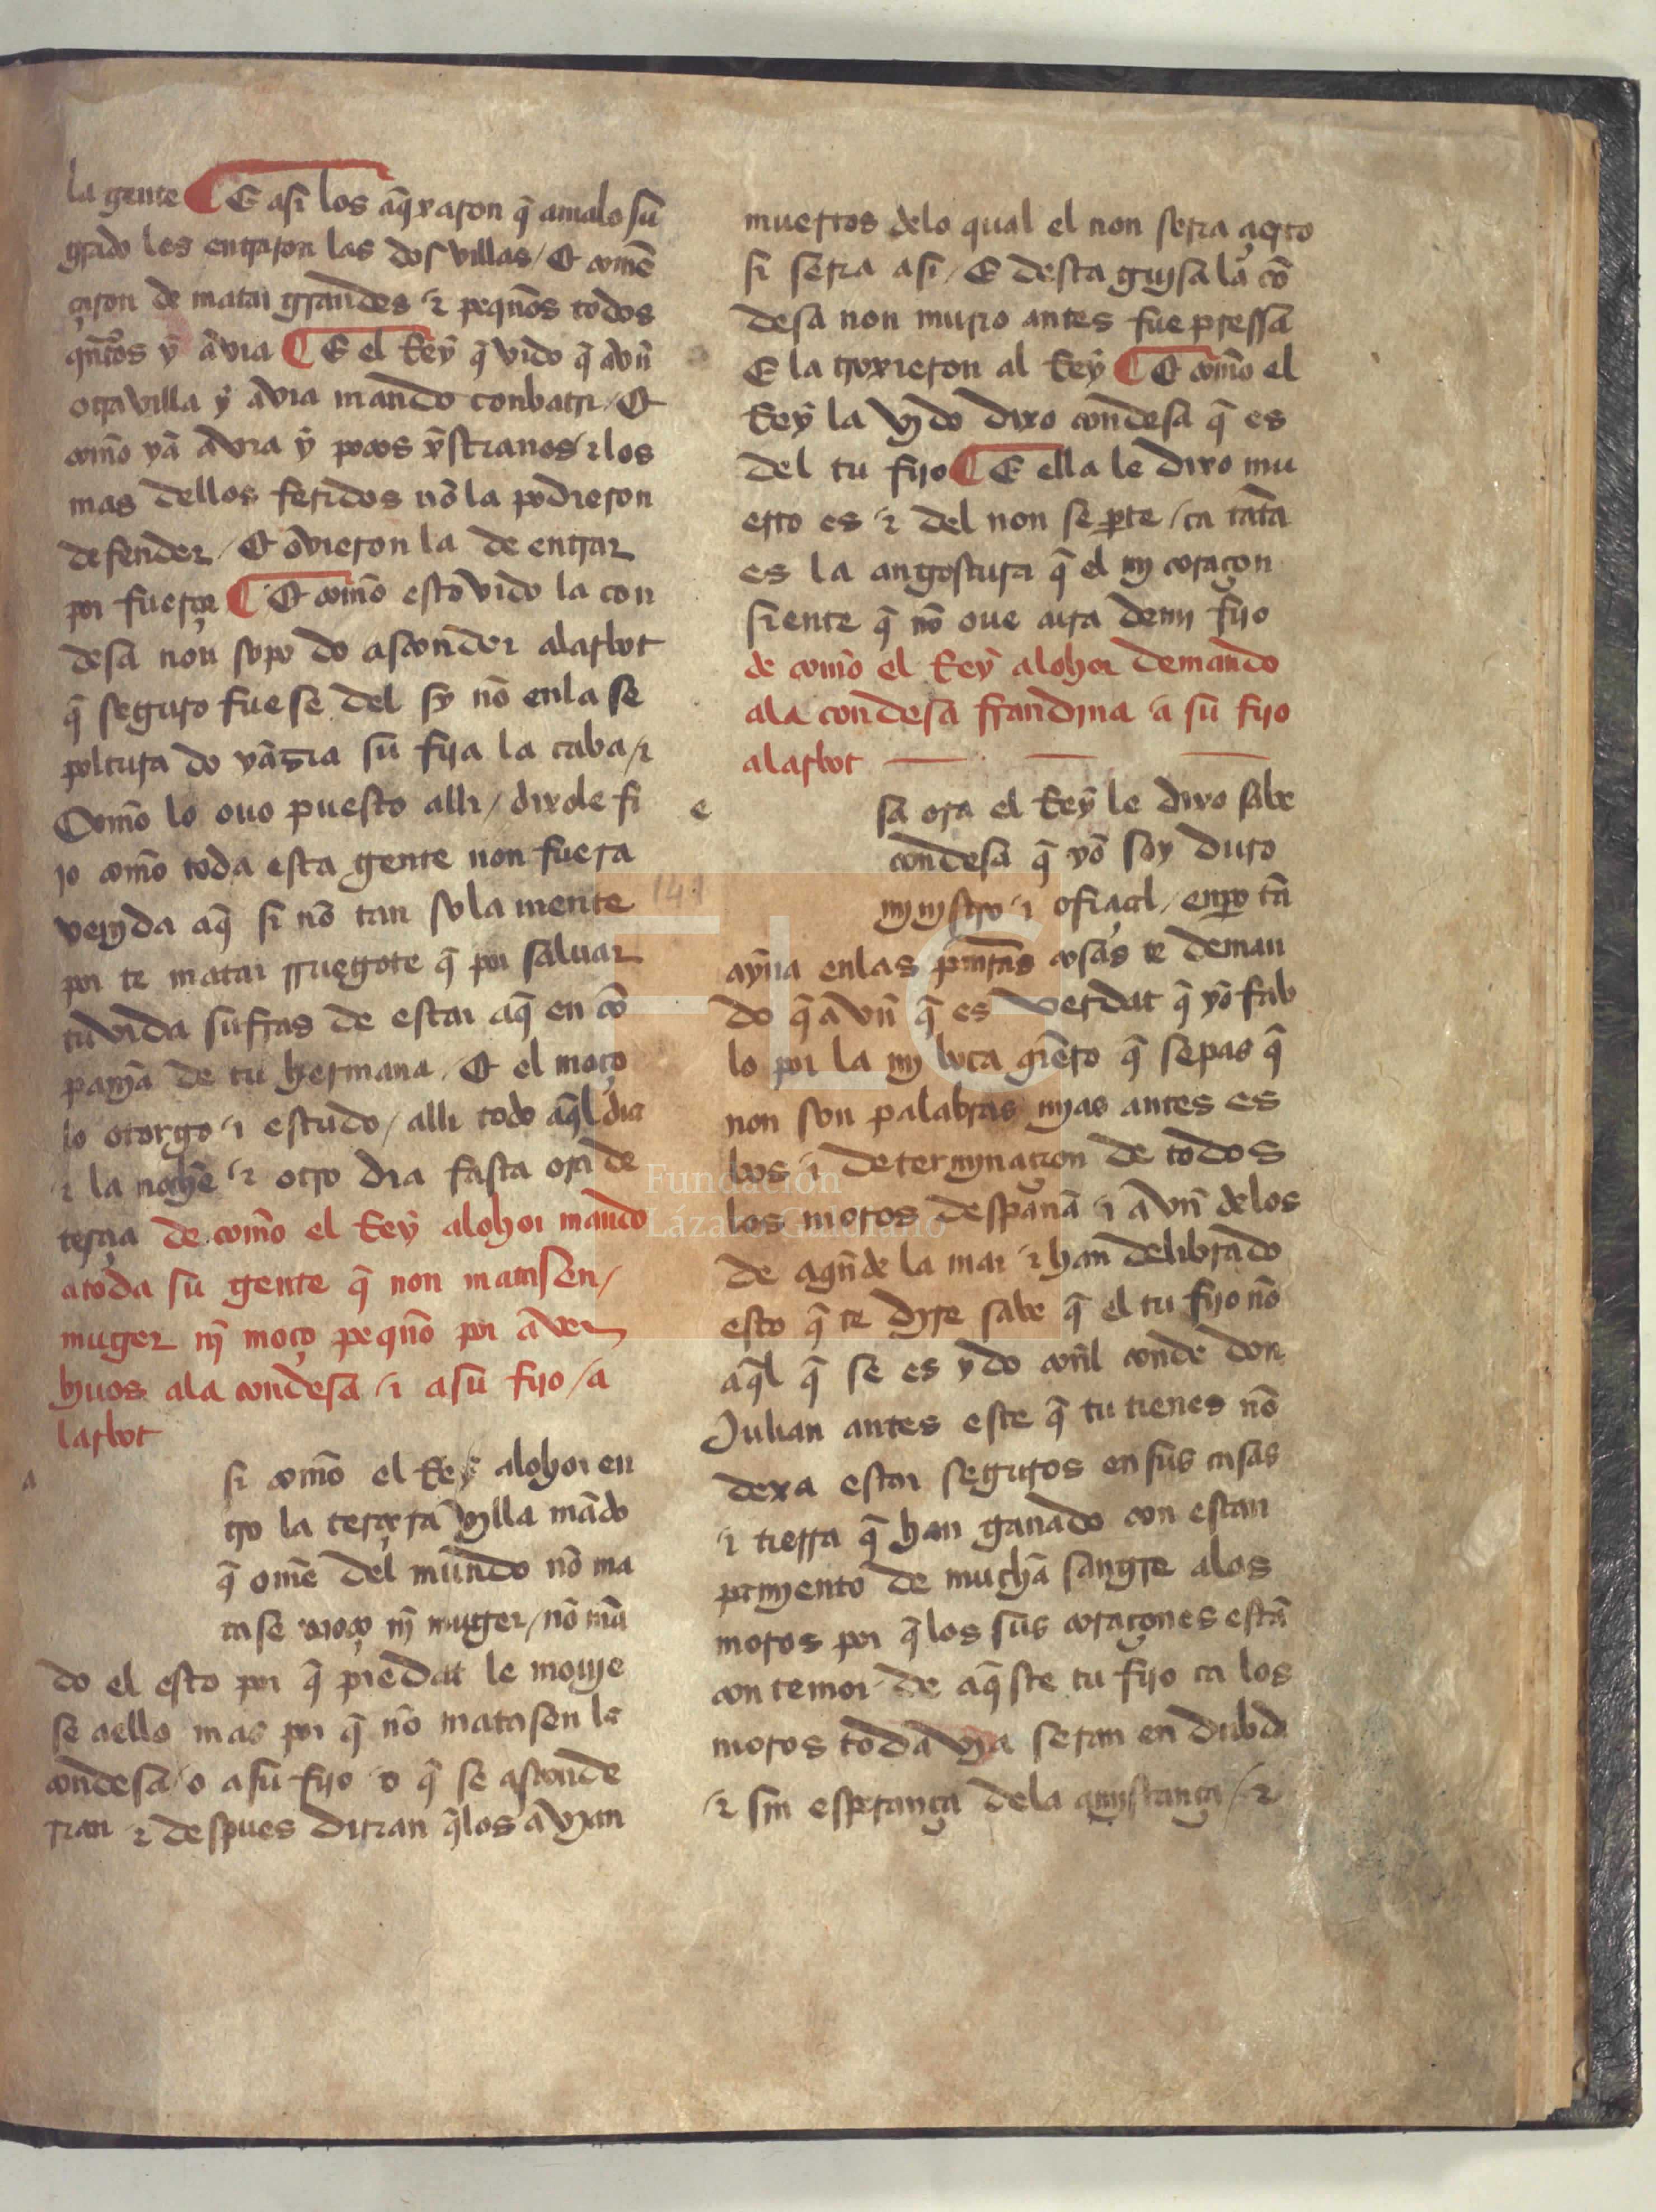 la gente E asi los aq̃xaron q̃ amalo su
grado les entraron las dos villas / Et comẽ
çaron de matar grandes ⁊ pequños todos
qñtos ȳ ãvia E el Rey q̃ vido q̃ avñ
otra villa ȳ avia mando conbatir / Et
com̃o yã avia ȳ pocos xp̃stianos / ⁊ los
mas dellos feridos nõ la podieron
defender / Et õvieron la de entrar
por fuerça Et com̃o esto vido la con
desa non sopo do asconder alarbot
q̃ seguro fuese del sy nõ enla se
poltura do yãzia su fija la caba / ⁊
Com̃o lo ouo puesto alli / dixole fi
jo com̃o toda esta gente non fuera
venjda aq̃ si nõ tan sola mente
por te matar rruegote q̃ por saluar
tu vida sufras de estar aq̃ en cõ
pañja de tu hermana / Et el moço
lo otorgo ⁊ estudo / alli todo aq̃l dia
⁊ la noche ⁊ otro dia fasta ora de
terçia de com̃o el Rey alohor mando
atoda su gente q̃ non matasen /
muger nj̃ moço pequño por ãver
biuos ala condesa ⁊ a su fijo / a
larbot
a
si com̃o el Rey alohor en
tro la terçera villa mãdo
q̃ om̃e del mundo nõ ma
tase moço nj̃ muger / nõ mã
do el esto por q̃ piedat le mouje
se aello mas por q̃ nõ matasen la
condesa / o a su fijo o q̃ se asconde
rian ⁊ despues dirian q̃los avian
muertos delo qual el non seria çierto
si seria asi / E desta guisa la cõ
desa non murio antes fue pressa
E la troxieron al Rey Et com̃o el
Rey la vjdo dixo condesa q̃ es
del tu fijo E ella le dixo mu
erto es ⁊ del non se parte / ca tãta
es la angostura q̃ el mj coraçon
siente q̃ nõ oue cura de mj fijo
de com̃o el Rey alohor demando
ala condesa frrandjna a su fijo
alarbot
e
sa ora el Rey le dixo sabe
condesa q̃ yõ soy duro
mjnjstro ⁊ ofiçial / enpo tã
ayna enlas cosas te deman
do q̃ avñ q̃ es verdat q̃ yõ fab
lo por la mj boca qiero q̃ sepas q̃
non son palabras mjas antes es
bos ⁊ determjnaçion de todos
los moros despaña ⁊ avñ delos
de aqñde la mar ⁊ han delibrado
esto q̃ te djre sabe q̃ el tu fijo nõ
aq̃l q̃ se es ydo coñl conde don
Julian antes este q̃ tu tienes nõ
dexa estar seguros en sus casas
⁊ tierra q̃ han ganado con espar
zimjento de mucha sangre alos
moros por q̃ los sus coraçones estã
con temor de aq̃ste tu fijo ca los
moros toda vja seran en dubda
⁊ sin esperança dela / ⁊
141
FLG
Fundación
Lázaro Galdiano